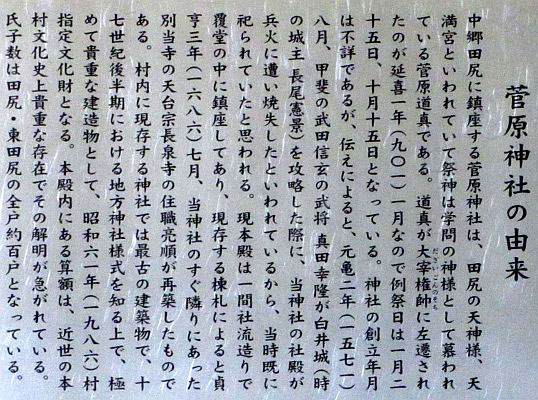 菅原神社の由来
中郷田尻に鎮座する菅原神社は、田尻の天神様、天
満宮といわれていて祭神は学問の神様として慕われ
ている菅原道真である。道真が大宰権帥に左遷され
だざいごんのそち
たのが延喜一年(九〇一)一月なので例祭日は一月二
十五日、十月十五日となっている。神社の創立年月
は不詳であるが、伝えによると、元亀二年(一五七一)
八月、甲斐の武田信玄の武将 真田幸隆が白井城(時
の城主 長尾憲景)を攻略した際に、当神社の社殿が
兵火に遭い焼失したといわれているから、当時既に
祀られていたと思われる。現本殿は一間社流造りで
覆堂の中に鎮座してあり、現存する棟札によると貞
亨三年(一六八六)七月、当神社のすぐ隣りにあった
別当寺の天台宗長泉寺の住職亮順が再築したもので
ある。村内に現存する神社では最古の建築物で、十
七世紀後半期における地方神社様式を知る上で、極
めて貴重な建造物として、昭和六一年(一九八六)村
指定文化財となる。本殿内にある算額は、近世の本
村文化史上貴重な存在でその解明が急がれている。
氏子数は田尻・東田尻の全戸約百戸となっている。